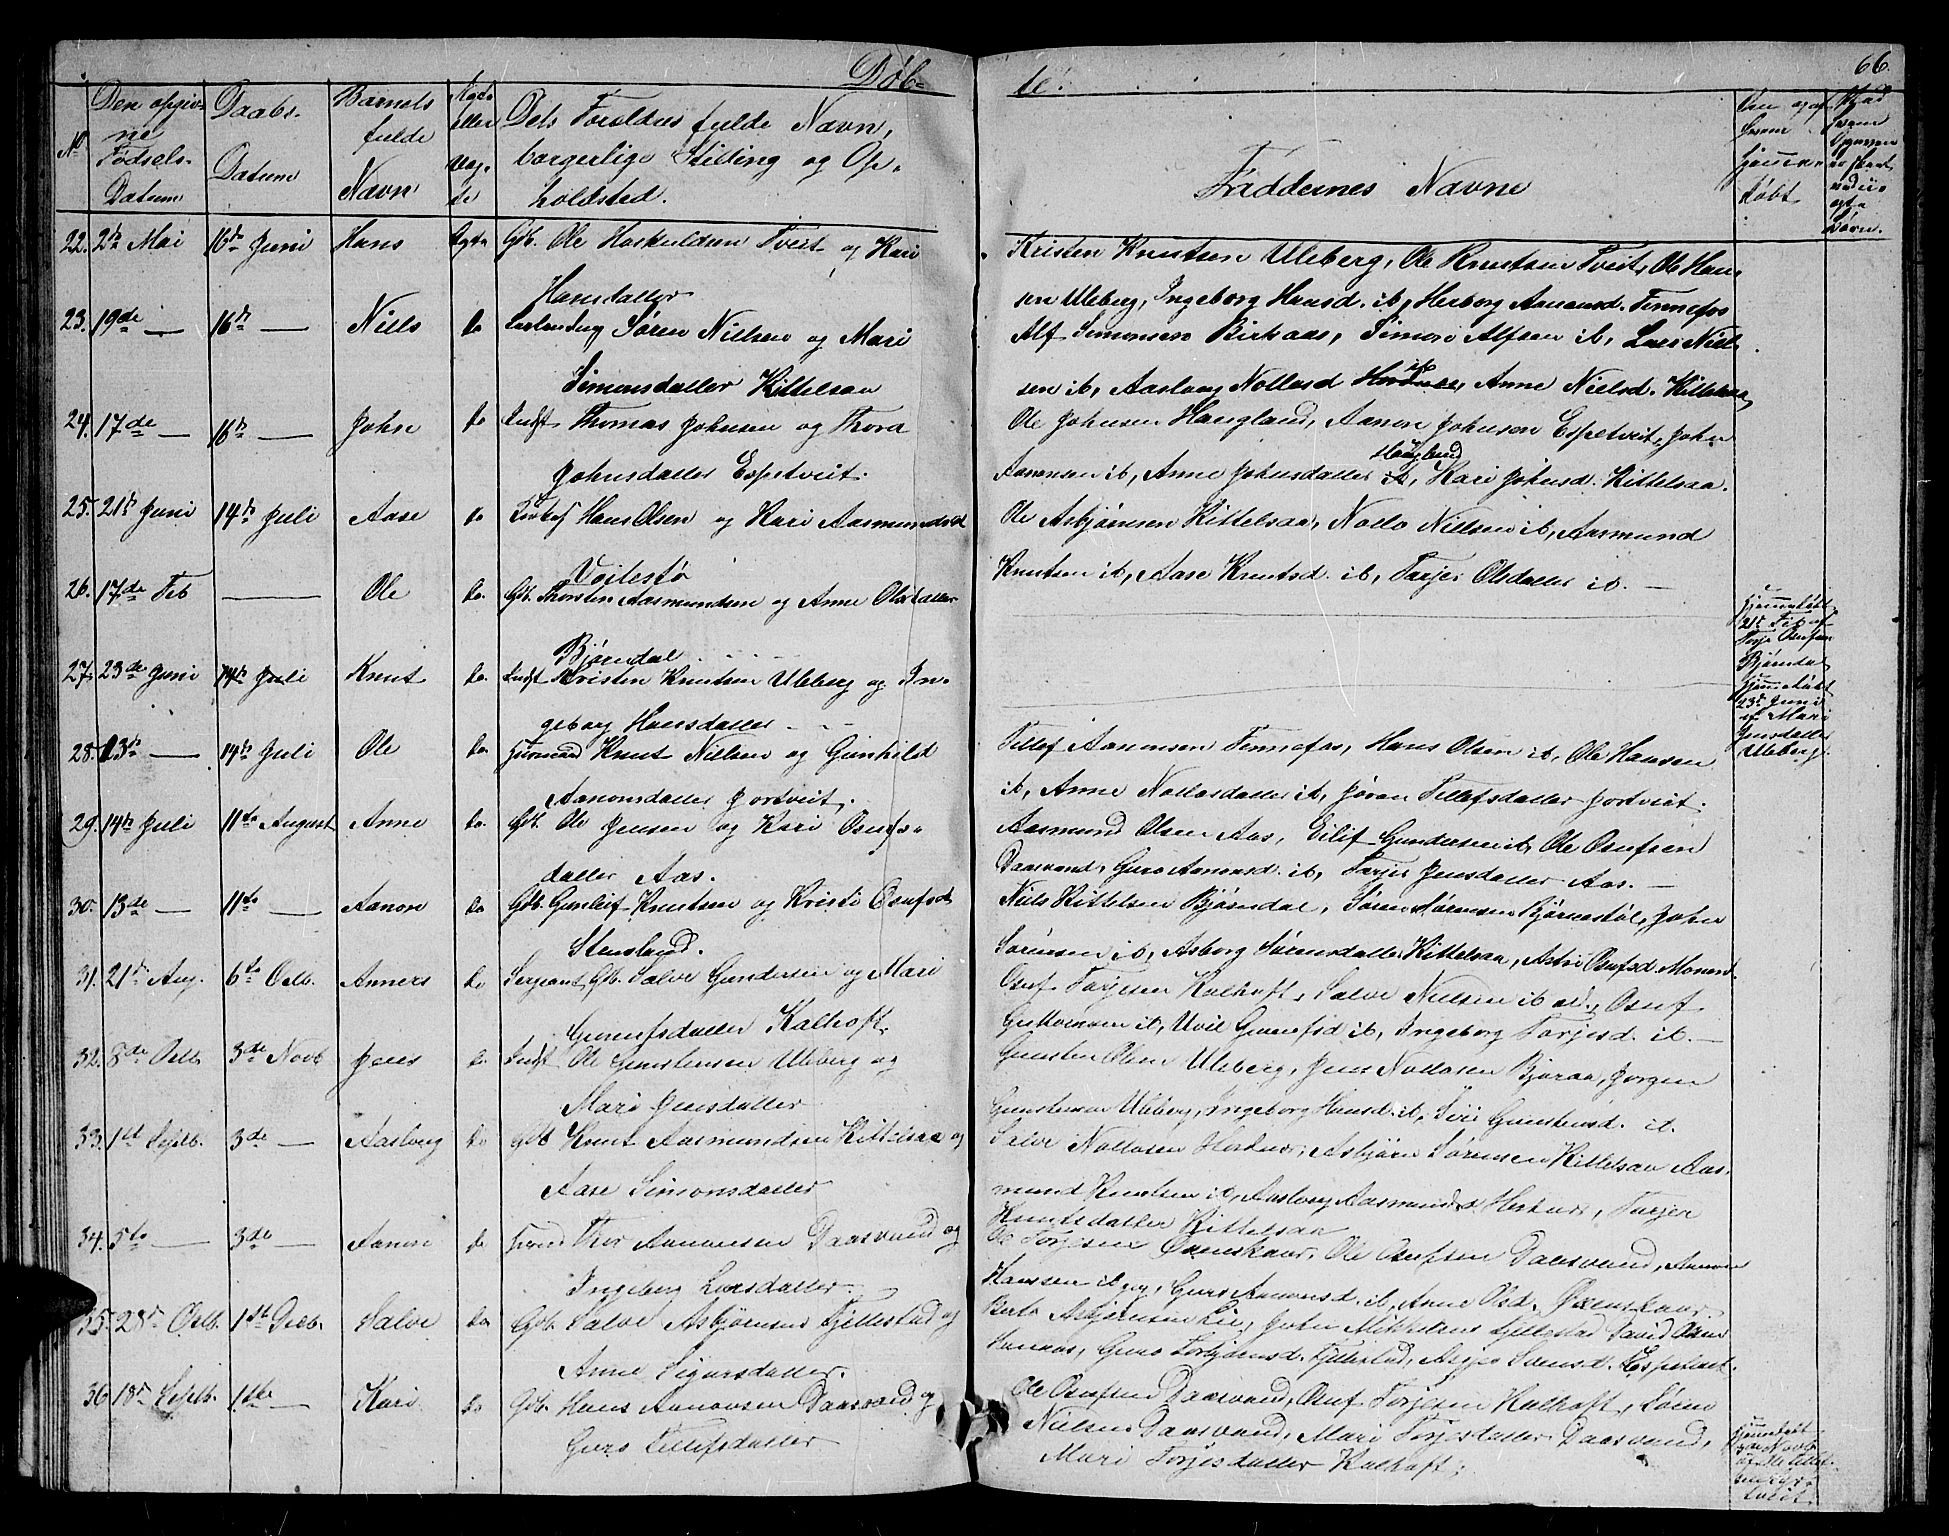 Døb-
te.
66.
No
Den opgiv-
ne
Fødsels-
Datum
Daabs-
Datum
Barnets
fulde
Navn
Ægte
eller
Uæg-
te
Dets Forældres fulde Navn,
borgerlige Stilling og Op-
holdsted.
Faddernes Navne
22. 2den Mai 16de Juni Hans Ægte Gdb. Ole Haskuldsen Tveit og Kari
Hansdatter
Kristen Knutsen Uleberg, Ole Knutsen Tveit, Ole Han-
sen Uleberg, Ingeborg Hansd. ib, Herborg Aanonsd. Tennefos
23. 19de — 16de — Niels do Søren Nielsen og Mari
Simonsdatter Kittelsaa
Alf Simonsen Birkaas, Simon Alfsen ib, Lars Niel-
sen ib, Aaslaug Nottosd ib, Anne Nielsd. Kittelsaa
24. 17de — 16de — John do Indst Thomas Johnsen og Thora
Johnsdatter Espetveit.
Ole Johnsen Haugland, Aanon Johnsen Espetveit, John
Haugland
Aanonsen ib, Anne Johnsdatter ib, Kari Johnsd. Kittelsaa.
25. 21de Juni 14de Juli Aase do Hans Olsen og Kari Aasmundsd
Voilestø
Ole Asbjørnsen Kittelsaa, Notto Nielsen ib, Aasmund
Knutsen ib, Aase Knutsd. ib, Tarjer Olsdatter ib. —
26. 17de Feb — Ole do. Gb. Thorsten Aasmundsen og Anne Olsdatter
Bjørndal
Hjemmedøbt
21de Feb af
Terje Osufsen
Bjørndal
27. 23de Juni 14de Juli Knut do. Indst Kristen Knutsen Uleberg og In-
geborg Hansdatter
Hjemmedøbt
23de Juni
af Mari
Jensdatter
Uleberg.
28. 13de — 14de Juli Ole do. Knut Nielsen og Gunhild
Aanonsdatter Jortveit.
Tellef Aanonsen Tennefos, Hans Olsen ib, Ole Hansen
ib, Anne Nottosdatter ib, Jøran Tellefsdatter Jortveit.
29. 14de Juli 11te August Anne do. Gb. Ole Jensen og Kari Osufs-
datter Aas.
Aasmund Olsen Aas, Eilif Gundersen ib, Ole Osufsen
Daasvand, Guro Aanonsd. ib, Tarjer Jensdatter Aas. —
30. 13de — 11te — Aanon do Gdb. Gunleif Knutsen og Kristi Osufsd
Stensland.
Niels Kittelsen Bjørndal, Søren Sørensen Bjørnestøl, John
Sørensen ib, Asborg Sørensdatter Kittelsaa, Astri Osufsd. Monen.
31. 21de Aug. 6te Octb. Anners do Sergeant, Gb. Salve Gundersen og Mari
Gunufsdatter Kalhoft.
Osuf Terjesen Kalhoft, Salve Nielsen ib, Osuf
Guttormsen ib, Uvil Gunufsd ib, Ingeborg Torjesd. ib. —
32. 8de Octb 3de Novb Jens do Indst Ole Gunstensen Uleberg og
Mari Jensdatter
Gunsten Olsen Uleberg, Jens Nottosen Bjoraa, Jørgen
Gunstensen Uleberg, Ingeborg Hansd. ib, Siri Gunstensd. ib.
33. 1st Septb. 3de — Aasborg do Gdb Knut Aasmundsen Kittelsaa og
Aase Simonsdatter
Salve Nottosen, Asbjørn Sørensen Kittelsaa Aas-
mund Knutsen ib, Aasborg Aasmundsd, Tarjer
Knutsdatter Kittelsaa
34. 5te — 3de — Aanon do Thor Aanonsen Daasvand og
Ingeborg Larsdatter.
Ole Torjesen Øxenskaar, Ole Osufsen Daasvand, Aanon
Hanssen ib, Guro Aanonsd. ib, Anne Olsd. Øxenskaar
35. 28de Octb. 1ste Decb. Salve do Gdb. Salve Asbjørnsen Fjellestad og
Anne Sigursdatter.
Asbjørnsen Lie, John Mikkelsen Fjellestad David Olsen
Guro Torbjørnsd. Fjellestad, Svensd. Espetveit.
36 18de Septb. 1ste — Kari do Gdb. Hans Aanonsen Daasvand og
Guro Tellefsdatter
Ole Osufsen Daasvand, Osuf Torjesen Kalhoft, Søren
Nielsen Daasvand, Mari Torjesdatter Daasvand,
Mari Torjesdatter Kalhoft.
Hjemmedøbt